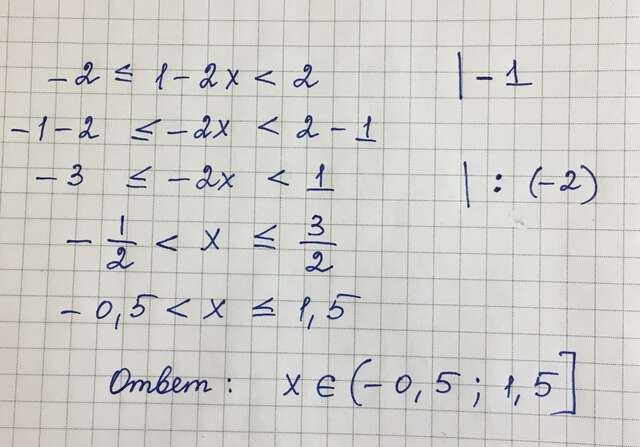 -2 ≤ 1-2x < 2 | -1
-1-2 ≤ -2x < 2-1
-3 ≤ -2x < 1 | : (-2)
-1/2 < x ≤ 3/2
-0,5 < x ≤ 1,5
Ответ: x ∈ (-0,5; 1,5]